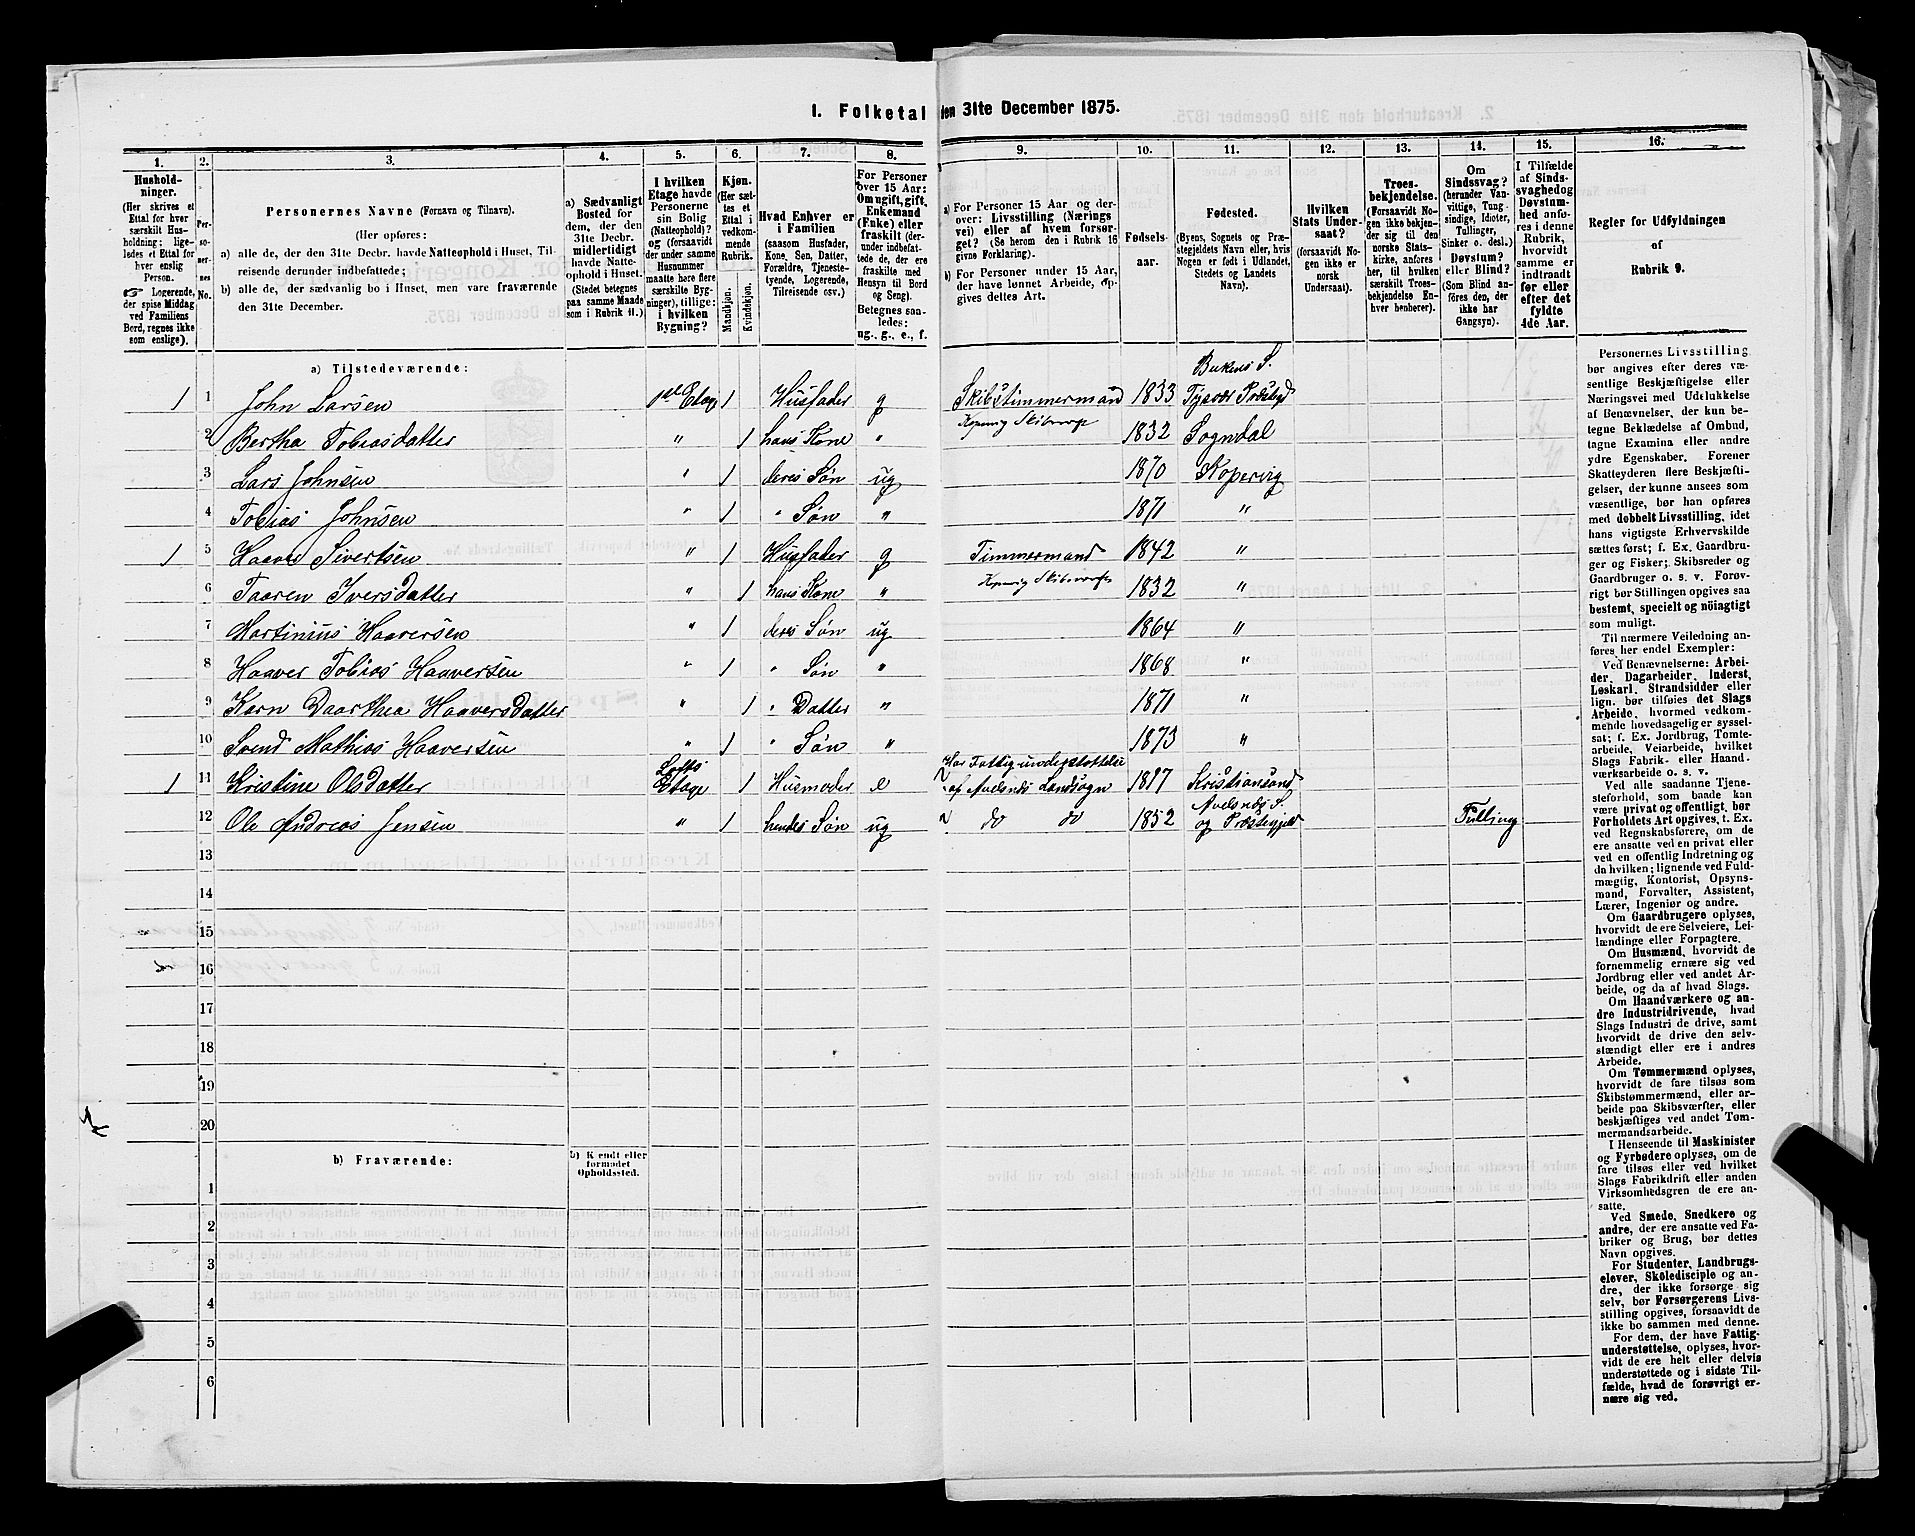 1. Folketal den 31te December 1875.
1. 2. 3. 4. 5. 6. 7. 8. 9. 10. 11. 12. 13. 14. 15. 16.
Hushold-
ninger.
(Her skrives et
Ettal for hver
særskilt Hus-
holdning; lige-
ledes et Ettal for
hver enslig
Person.
☞ Logerende,
der spise Middag
ved Familiens
Bord, regnes ikke
som enslige).
Per-
so-
ner-
nes
No.
Personernes Navne (Fornavn og Tilnavn).
(Her opføres:
a) alle de, der den 31te Decbr. havde Natteophold i Huset, Til-
reisende derunder indbefattede;
b) alle de, der sædvanlig bo i Huset, men vare fraværende
den 31te December.
a) Sædvanligt
Bosted for
dem, der den
31te Decbr.
midlertidigt
havde Natte-
ophold i Huset.
(Stedet betegnes
paa samme Maade
som i Rubrik 11.)
I hvilken
Etage havde
Personerne
sin Bolig
(Natteophold)?
og (forsaavidt
der under samme
Husnummer
maatte høre flere
særskilte Byg-
ninger), tillige:
i hvilken
Bygning?
Kjøn.
(Her sæt-
tes et
Ettal i
vedkom-
mende
Rubrik.
Mandkjøn.
Kvindekjøn.
Hvad Enhver er
i Familien
(saasom Husfader,
Kone, Søn, Datter,
Forældre, Tjeneste-
tyende, Logerende,
Tilreisende osv.)
For Personer
over 15 Aar:
Om ugift, gift,
Enkemand
(Enke) eller
fraskilt (der-
under indbefat-
tede de, der ere
fraskilte med
Hensyn til Bord
og Seng).
Betegnes saa-
ledes:
ug., g., e., f.
a) For Personer 15 Aar og der-
over: Livsstilling (Nærings
vei) eller af hvem forsør-
get? (Se herom den i Rubrik 16
givne Forklaring).
b) For Personer under 15 Aar,
der have lønnet Arbeide, op-
gives dettes Art.
Fødsels-
aar.
Fødested.
(Byens, Sognets og Præ-
stegjeldets Navn eller, hvis
Nogen er født i Udlandet,
Stedets og Landets
Navn).
Hvilken
Stats Under-
saat?
(forsaavidt No-
gen ikke er
norsk
Undersaat).
Troes-
bekjendelse.
(Forsaavidt No-
gen ikke bekjen-
der sig til den
norske Stats-
kirke, anføres
her, til hvilken
særskilt Troes-
bekjendelse En-
hver henhører).
Om
Sindssvag?
(herunder Van-
vittige, Tung-
sindige, Idioter,
Tullinger,
Sinker o. desl.)
Døvstum?
eller Blind?
(Som Blind an-
føres den, der
ikke har
Gangsyn).
I Tilfælde
af Sinds-
svaghedog
Døvstum-
hed anfø-
res i denne
Rubrik,
hvorvidt
samme er
indtraadt
før eller
efter det
fyldte
4de Aar.
Regler for Udfyldningen
af
Rubrik 9.
a) Tilstedeværende:
Bukens S.
1 1 John Larsen 1ste Etage 1 Husfader g Skibstimmermand 1833 Tysvær Præstgd
Kopervig Skibsverft
2 Bertha Tobiasdatter " 1 hans Kone " 1832 Sogndal
3 Lars Johnsen " 1 deres Søn ug 1870 Kopervig
4 Tobias Johnsen " 1 " Søn " 1871 "
1 5 Haaver Sivertsen " 1 Husfader g Timmermand 1842 "
Kopervig Skibsverft
6 Taaren Iversdatter " 1 hans Kone " 1832 "
7 Martinius Haaversen " 1 deres Søn ug 1864 "
8 Haaver Tobias Haaversen " 1 " Søn " 1868 "
9 Karn Daarthea Haaversdatter " 1 " Datter " 1871 "
10 Svend Mathias Haaversen " 1 " Søn " 1873 "
1 11 Kristine Olsdatter Lofts Etage 1 Husmoder e Har Fattigunderstøttelse
af Avelsnds Landsogn 1817 Kristiansand
12 Ole Andreas Jensen " 1 hendes Søn ug " do do 1852 Avelsnds S.
og Præstegjeld Tulling
13
14
15
16
17
18
19
20
b) Fraværende:
b) Kjendt eller
formodet
Opholdssted.
1
2
3
4
5
6
Personernes Livsstilling
bør angives efter deres væ-
sentlige Beskjæftigelse eller
Næringsvei med Udelukkelse
af Benævnelser, der kun be-
tegne Beklædelse af Ombud,
tagne Examina eller andre
ydre Egenskaber. Forener
Skatteyderen flere Beskjæfti-
gelser, der kunne ansees som
væsentlige, bør han opføres
med dobbelt Livsstilling, idet
hans vigtigste Erhvervskilde
sættes først; f. Ex. Gaardbru-
ger og Fisker; Skibsreder og
Gaardbruger o. s. v. Forøv-
rigt bør Stillingen opgives saa
bestemt, specielt og nöiagtigt
som muligt.
Til nærmere Veiledning an-
føres her endel Exempler:
Ved Benævnelserne: Arbei-
der, Dagarbeider, Inderst,
Løskarl, Strandsidder eller
lign. bør tilføies det Slags
Arbeide, hvormed vedkom-
mende hovedsagelig er syssel-
sat; f. Ex. Jordbrug, Tomte-
arbeide, Veiarbeide, hvilket
Slags Fabrik- eller Haand-
værksarbeide o. s. v.
Ved alle saadanne Tjene-
steforhold, som baade kan
være privat og offentligt, bør
Forholdets Art opgives, t. Ex.
ved Regnskabsførere, om de
ere ansatte ved en privat eller
ved en offentlig Indretning og
da hvilken; lignende ved Fuld-
mægtig, Kontorist, Opsyns-
mand, Forvalter, Assistent,
Lærer, Ingeniør og andre.
Om Gaardbrugere oplyses,
hvorvidt de ere Selveiere, Lei-
lændinge eller Forpagtere.
Om Husmænd, hvorvidt de
fornemmelig ernære sig ved
Jordbrug eller ved andet Ar-
beide, og da af hvad Slags.
Om Haandværkere og an-
dre Industridrivende, hvad
Slags Industri de drive, samt
hvorvidt de drive den selv-
stændigt eller ere i andres
Arbeide.
Om Tømmermænd oplyses,
hvorvidt de fare tilsøs som
Skibstømmermænd, eller ar-
beide paa Skibsværfter, eller
beskjæftiges ved andet Tøm-
mermandsarbeide.
I Henseende til Maskinister
og Fyrbødere oplyses, om de
fare tilsøs eller ved hvilket
Slags Fabrikdrift eller anden
Virksomhedsgren de ere an-
satte.
Ved Smede, Snedkere og
andre, der ere ansatte ved Fa-
briker og Brug, bør dettes
Navn opgives.
For Studenter, Landbrugs-
elever, Skoledisciple og an-
dre, der ikke forsørge sig
selv, bør Forsørgerens Livs-
stilling opgives, forsaavidt de
ikke bo sammen med denne.
For dem, der have Fattig-
understøttelse, oplyses, hvor-
vidt de ere helt eller delvis
understøttede og i sidste Til-
fælde, hvad de forøvrigt er-
nære sig ved.